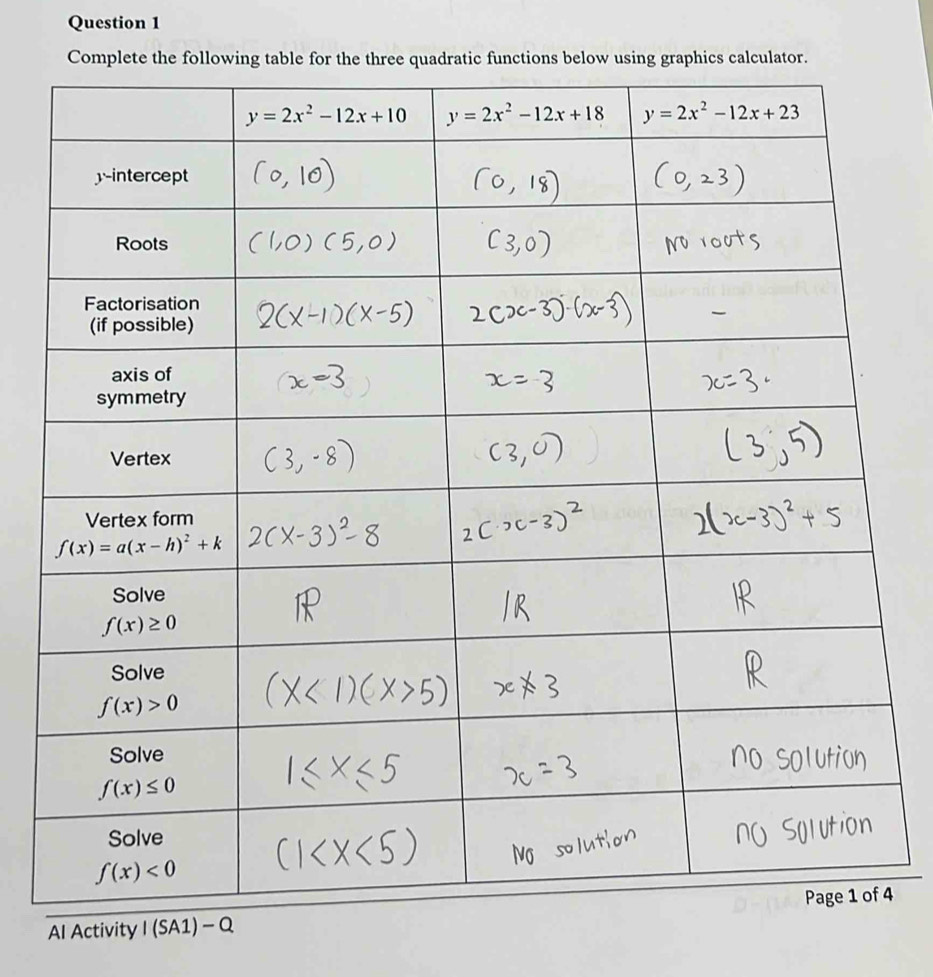 Question 1
Complete the following table for the three quadratic functions below using graphics calculator.
y = 2x² − 12x + 10 y = 2x² − 12x + 18 y = 2x² − 12x + 23
y-intercept (0, 10) (0, 18) (0, 23)
Roots (1,0) (5,0) (3,0) No roots
Factorisation
(if possible) 2(x-1)(x-5) 2(x-3)·(x-3) –
axis of
symmetry x=3 x=3 x=3.
Vertex (3,-8) (3,0) (3,5)
Vertex form
f(x) = a(x − h)² + k 2(x-3)²-8 2(x-3)² 2(x-3)²+5
Solve
f(x) ≥ 0 ℝ ℝ ℝ
Solve
f(x) > 0 (x<1)(x>5) x≠3 ℝ
Solve
f(x) ≤ 0 1≤x≤5 x=3 no solution
Solve
f(x) < 0 (1<x<5) No solution no solution
Page 1 of 4
AI Activity I (SA1) – Q